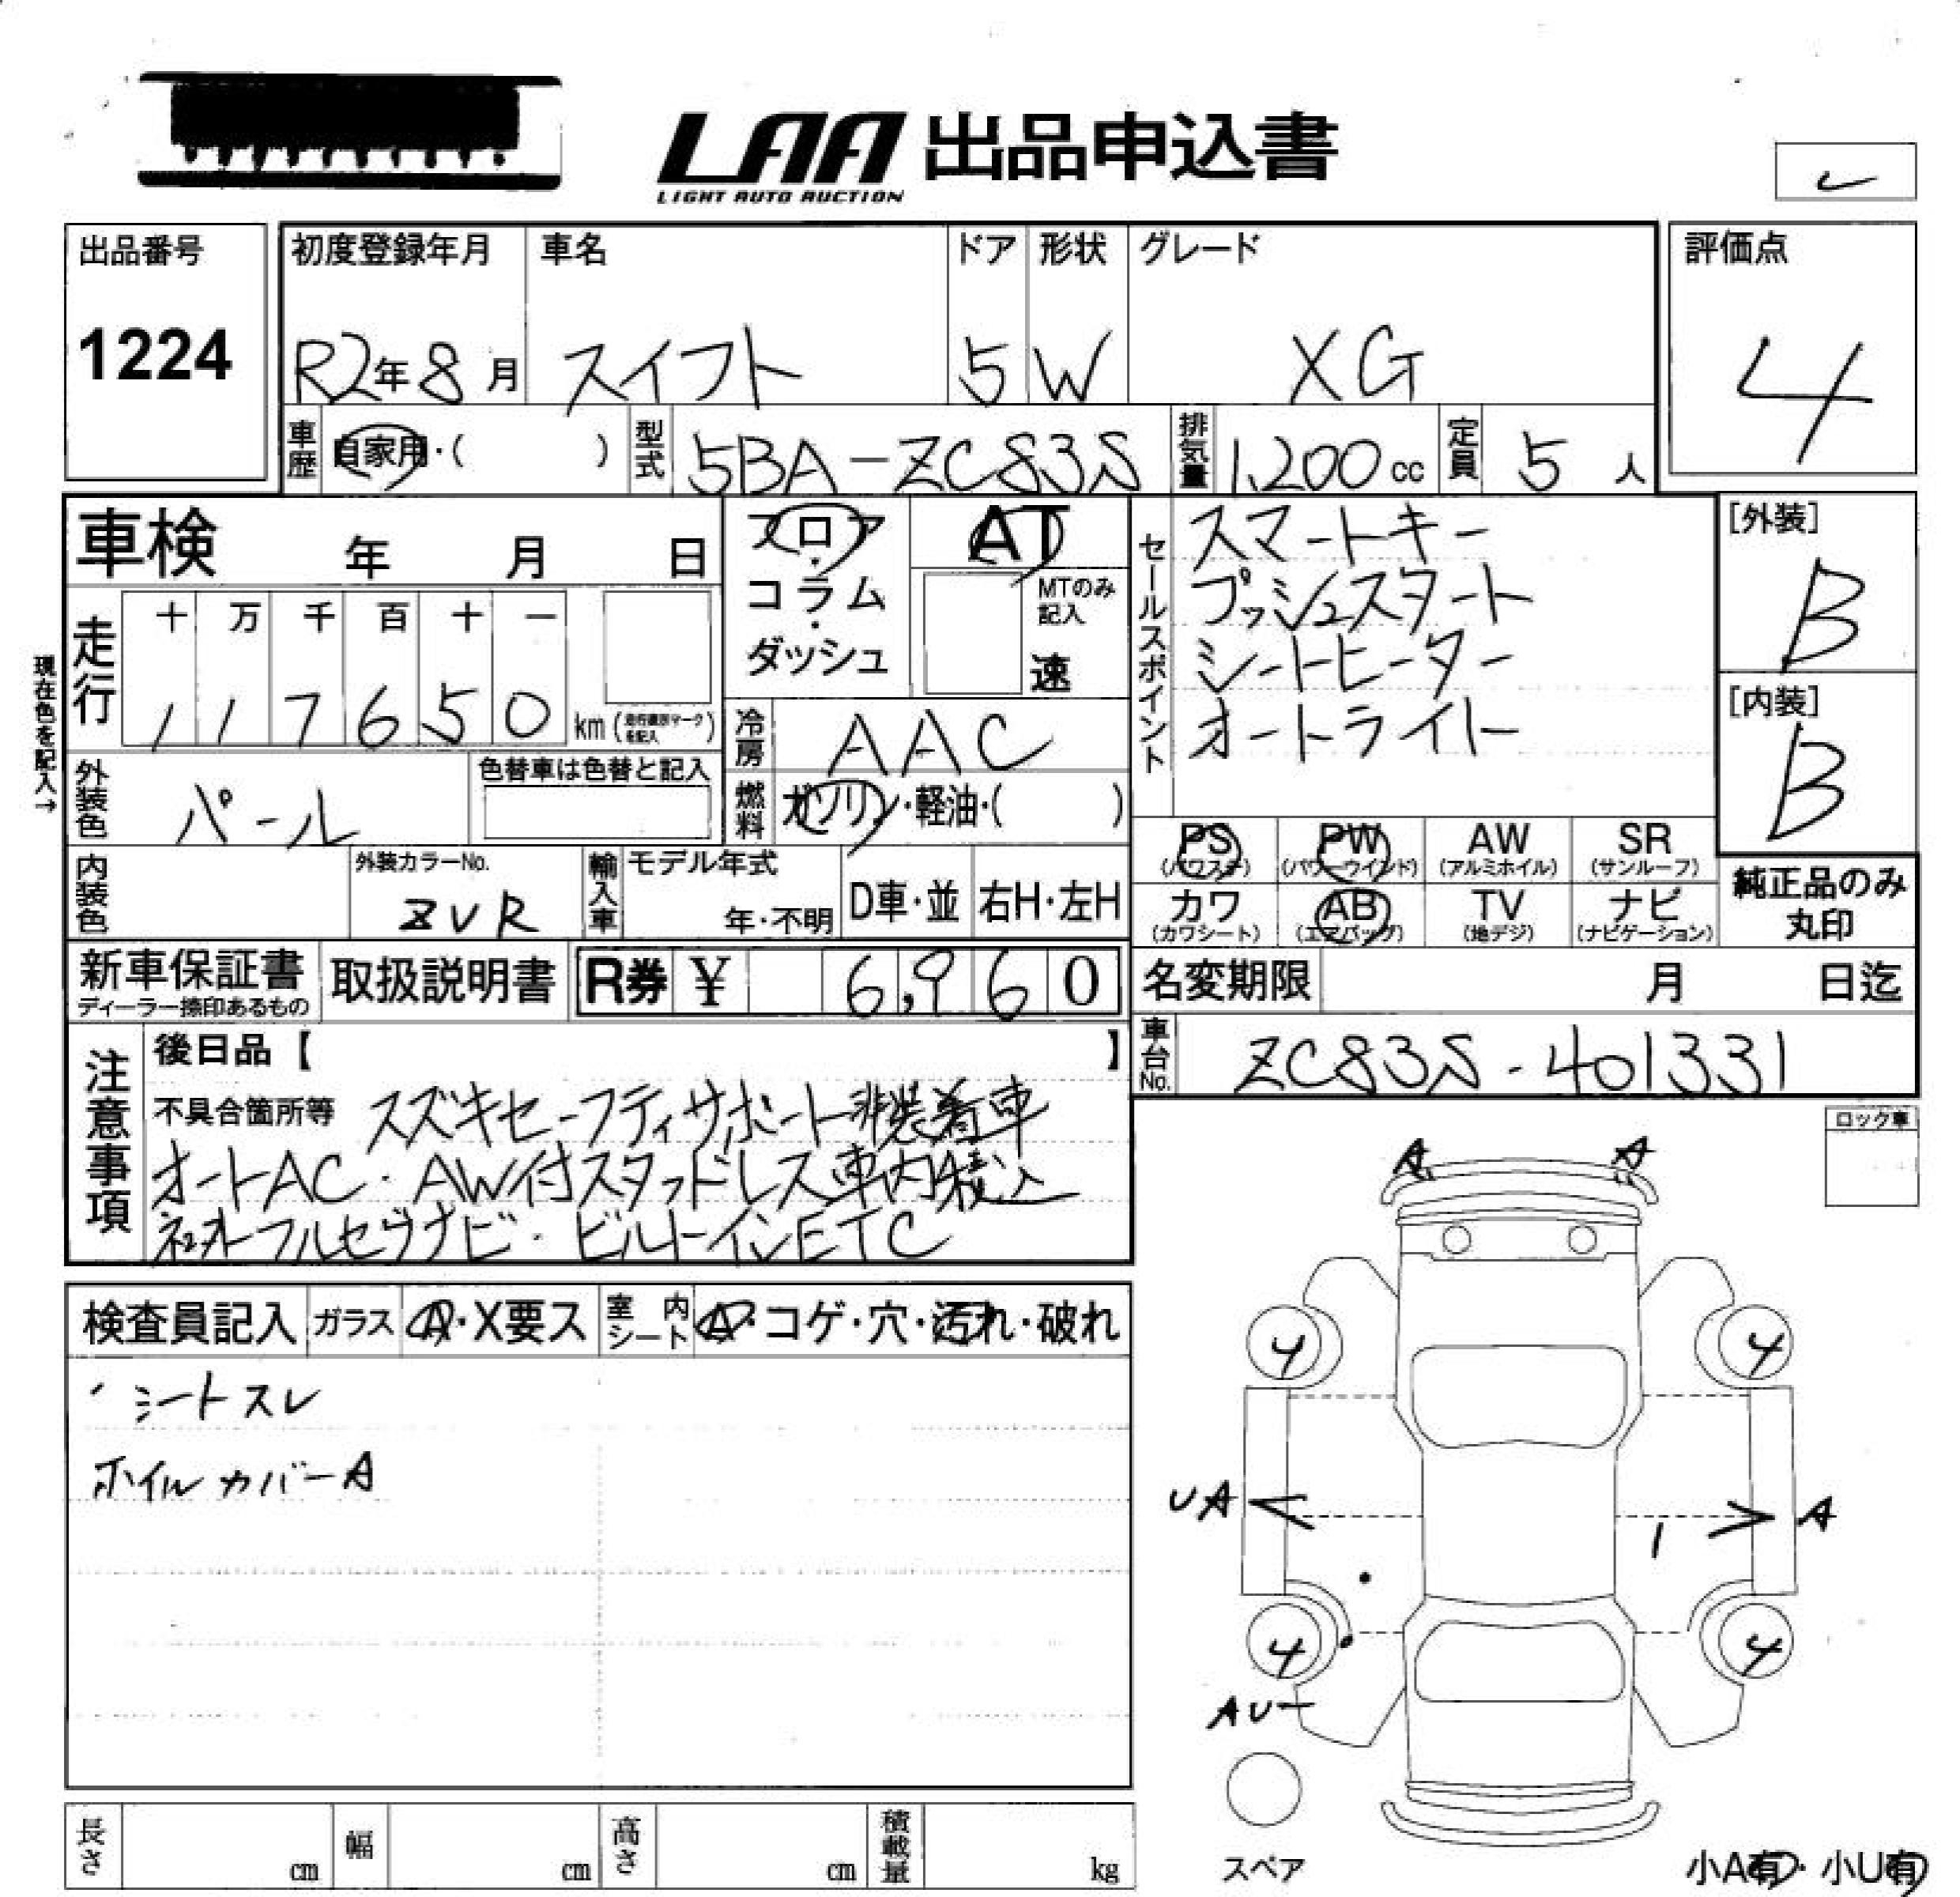 LAA 出品申込書
LIGHT AUTO AUCTION
出品番号
1224
初度登録年月
R2年8月
車名
スイフト
ドア
5
形状
W
グレード
XG
評価点
4
車歴
自家用・( )
型式
5BA-ZC83S
排気量
1,200cc
定員
5人
車検 年 月 日
フロア・コラム・ダッシュ
AT
MTのみ
記入
速
セールスポイント
スマートキー
プッシュスタート
シートヒーター
オートライト
[外装]
B
[内装]
B
現在色を記入→
走行
十 万 千 百 十 一
1 1 7 6 5 0 km (走行種別マークを記入)
冷房
AAC
外装色
パール
色替車は色替と記入
燃料
ガソリン・軽油・( )
PS
(パワステ)
PW
(パワーウインド)
AW
(アルミホイル)
SR
(サンルーフ)
カワ
(カワシート)
AB
(エアバッグ)
TV
(地デジ)
ナビ
(ナビゲーション)
純正品のみ
丸印
内装色
外装カラーNo.
ZVR
輸入車
モデル年式
年・不明
D車・並
右H・左H
新車保証書
ディーラー捺印あるもの
取扱説明書
R券 ¥ 6,960
名変期限 月 日迄
車台No.
ZC83S-401331
注意事項
後日品【 】
不具合箇所等 スズキセーフティサポート非装着車
オートAC・AW付スタッドレス車内積込
社外フルセグナビ・ビルトインETC
ロック車
検査員記入
ガラス
A・X要ス
室内
シート
A・コゲ・穴・汚れ・破れ
・シートスレ
ホイルカバーA
A A
4 4
UA A
4 4
AU
スペア
長さ cm
幅 cm
高さ cm
積載量 kg
小A有・小U有